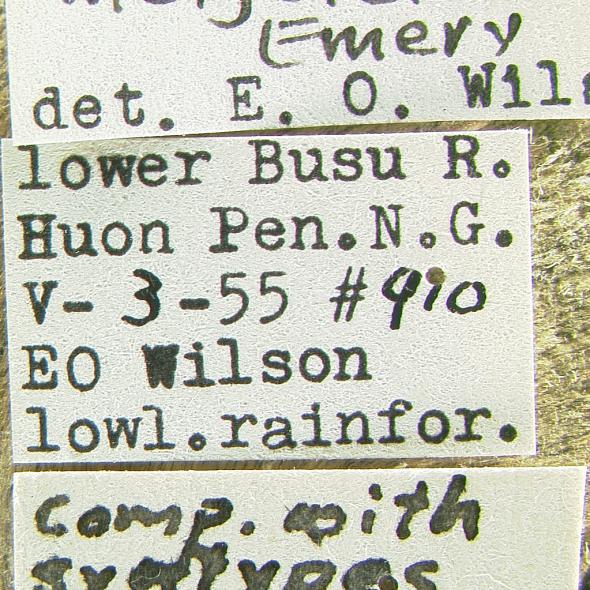 Emery
det. E. O. Wils
lower Busu R.
Huon Pen. N. G.
V- 3 -55 #910
EO Wilson
lowl. rainfor.
comp. with